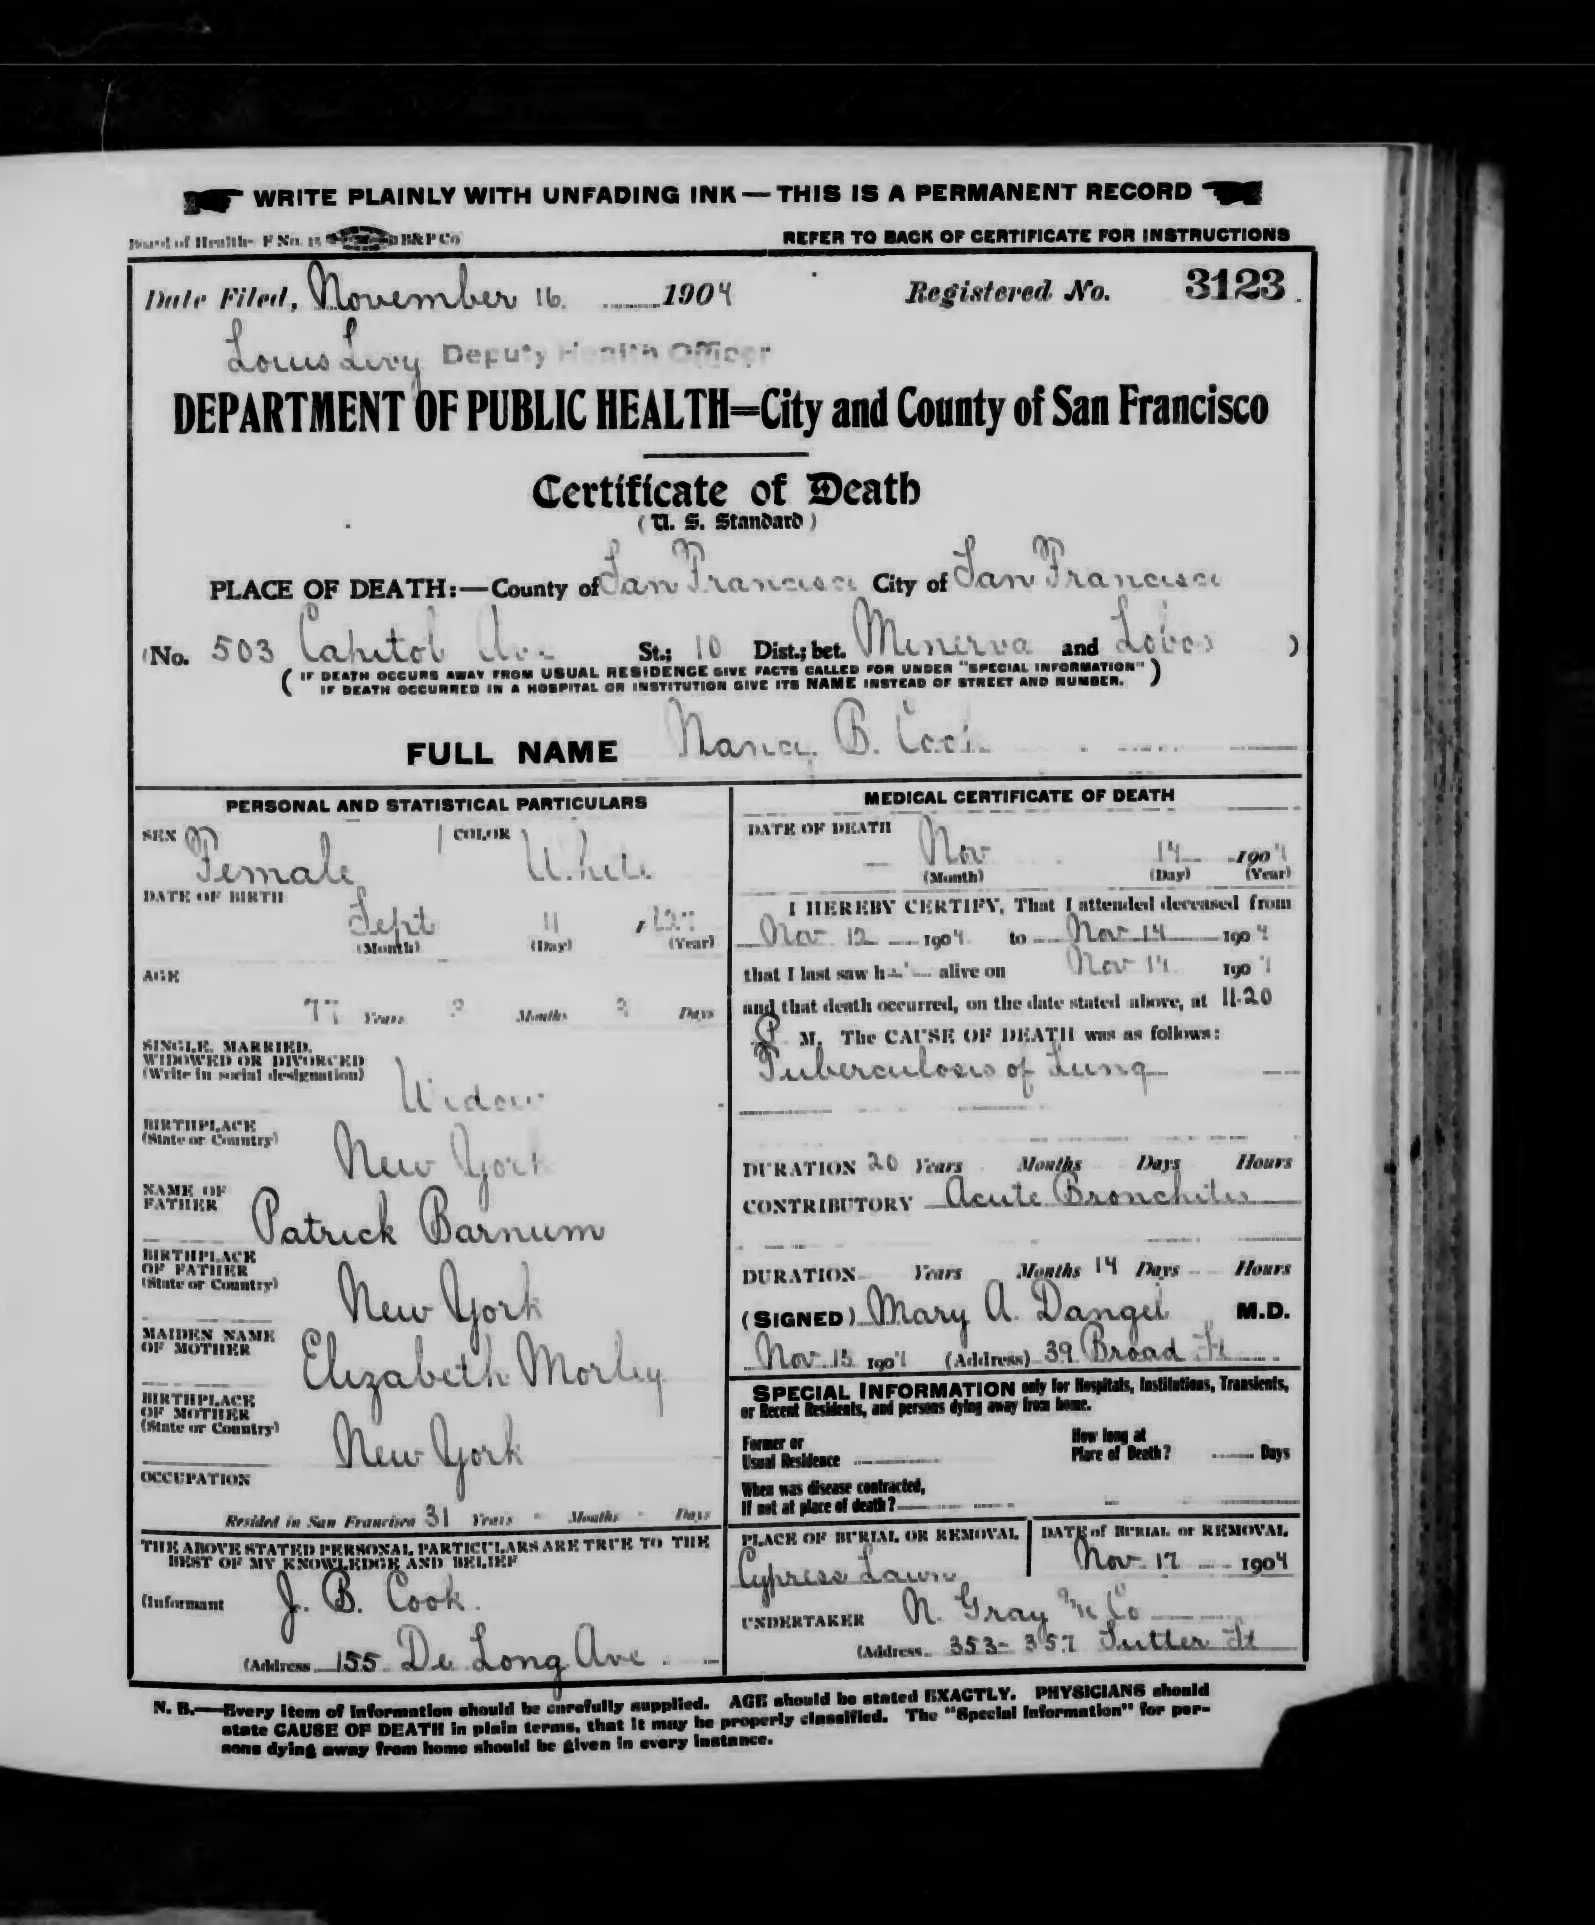 WRITE PLAINLY WITH UNFADING INK — THIS IS A PERMANENT RECORD
Board of Health- F No. 15 B&P Co
REFER TO BACK OF CERTIFICATE FOR INSTRUCTIONS
Date Filed, November 16. 1904 Registered No. 3123
Louis Levy Deputy Health Officer
DEPARTMENT OF PUBLIC HEALTH=City and County of San Francisco
Certificate of Death
(U. S. Standard)
PLACE OF DEATH:—County of San Francisco City of San Francisco
(No. 503 Capitol Ave St.; 10 Dist.; bet. Minerva and Lobos )
( IF DEATH OCCURS AWAY FROM USUAL RESIDENCE GIVE FACTS CALLED FOR UNDER "SPECIAL INFORMATION"
IF DEATH OCCURRED IN A HOSPITAL OR INSTITUTION GIVE ITS NAME INSTEAD OF STREET AND NUMBER. )
FULL NAME Nancy B. Cook
PERSONAL AND STATISTICAL PARTICULARS
SEX Female COLOR White
DATE OF BIRTH
Sept 11
(Month) (Day) (Year)
AGE
77 Years 2 Months 3 Days
SINGLE, MARRIED,
WIDOWED OR DIVORCED
(Write in social designation) Widow
BIRTHPLACE
(State or Country) New York
NAME OF
FATHER Patrick Barnum
BIRTHPLACE
OF FATHER
(State or Country) New York
MAIDEN NAME
OF MOTHER Elizabeth Morley
BIRTHPLACE
OF MOTHER
(State or Country) New York
OCCUPATION
Resided in San Francisco 31 Years - Months - Days
THE ABOVE STATED PERSONAL PARTICULARS ARE TRUE TO THE
BEST OF MY KNOWLEDGE AND BELIEF
(Informant J. B. Cook.
(Address 155 De Long Ave.
MEDICAL CERTIFICATE OF DEATH
DATE OF DEATH Nov 14 1904
(Month) (Day) (Year)
I HEREBY CERTIFY, That I attended deceased from
Nov 12 1904 to Nov 14 1904
that I last saw her alive on Nov 14 1904
and that death occurred, on the date stated above, at 11-20
P M. The CAUSE OF DEATH was as follows:
Tuberculosis of Lung
DURATION 20 Years Months Days Hours
CONTRIBUTORY Acute Bronchitis
DURATION Years Months 14 Days Hours
(SIGNED) Mary A. Dangel M.D.
Nov. 15 1904 (Address) 39 Broad St
SPECIAL INFORMATION only for Hospitals, Institutions, Transients,
or Recent Residents, and persons dying away from home.
Former or
Usual Residence
How long at
Place of Death? Days
When was disease contracted,
If not at place of death?
PLACE OF BURIAL OR REMOVAL
Cypress Lawn
DATE of BURIAL or REMOVAL
Nov. 17 1904
UNDERTAKER N. Gray & Co
(Address. 353-357 Sutter St
N. B.—Every item of information should be carefully supplied. AGE should be stated EXACTLY. PHYSICIANS should
state CAUSE OF DEATH in plain terms, that it may be properly classified. The "Special Information" for per-
sons dying away from home should be given in every instance.